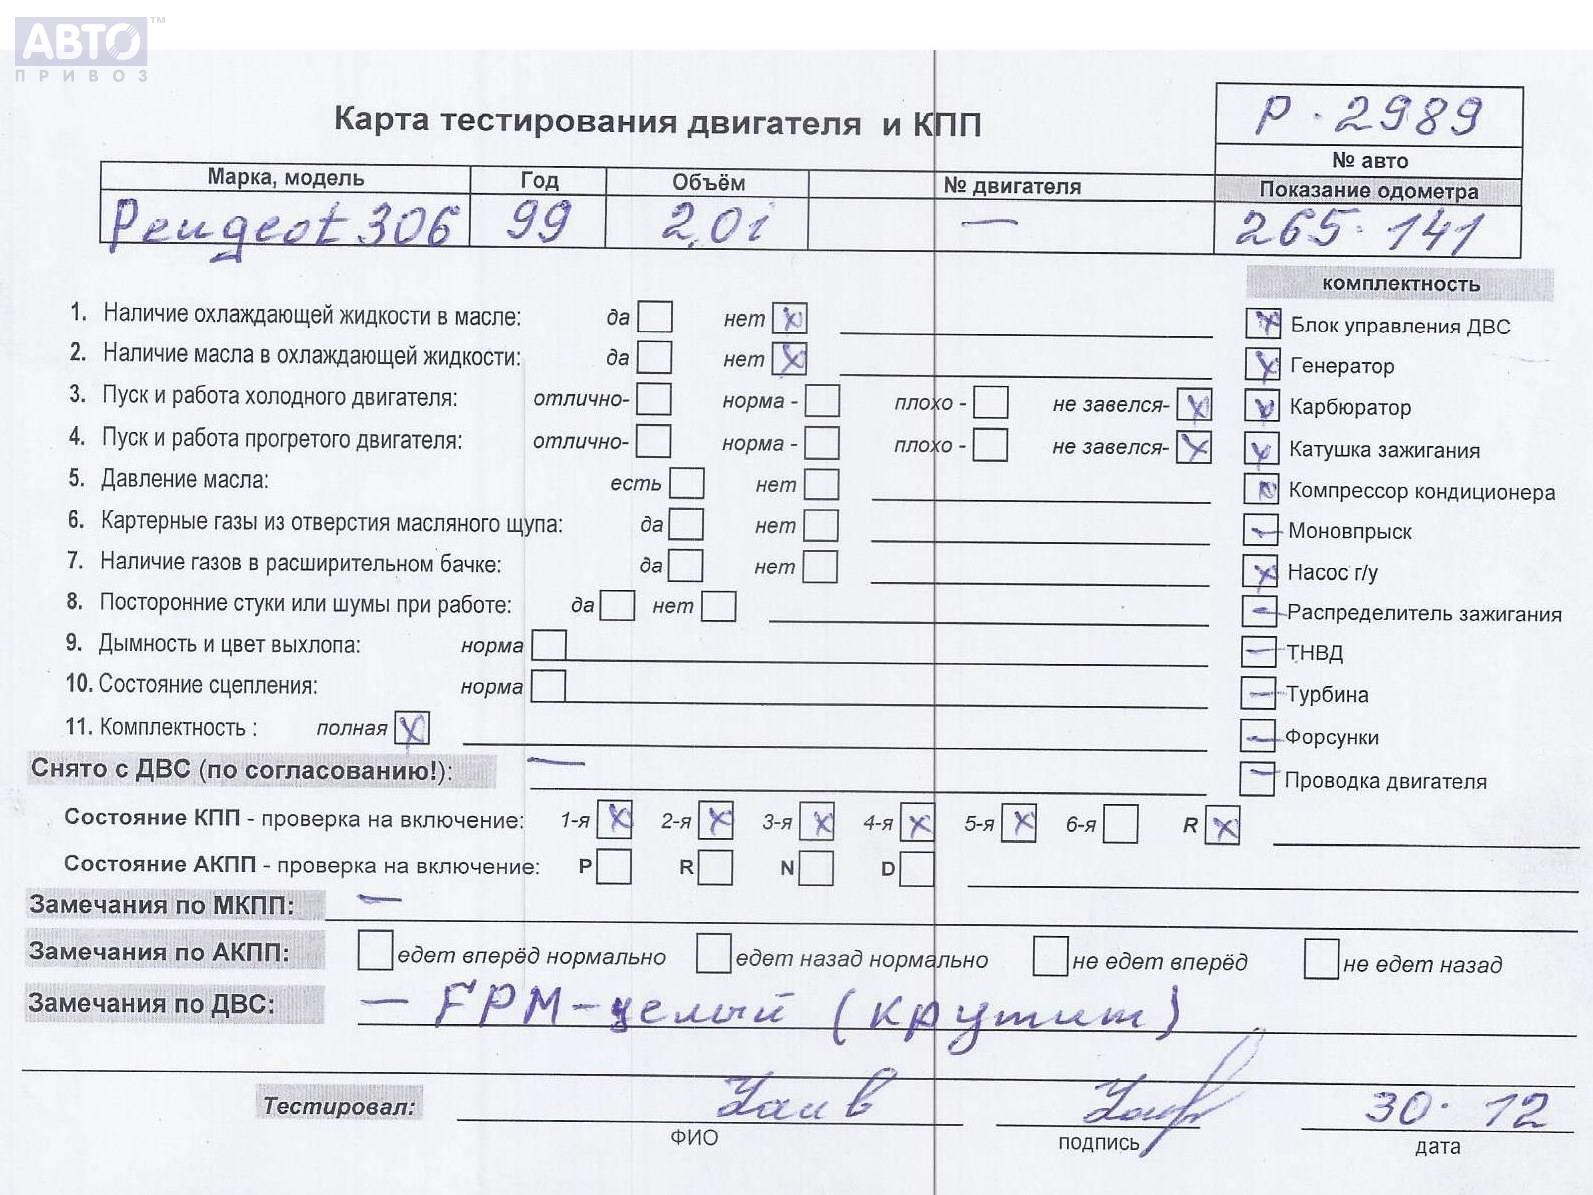 АВТО™
ПРИВОЗ
Карта тестирования двигателя и КПП
P.2989
№ авто
Марка, модель Год Объём № двигателя Показание одометра
Peugeot 306 99 2,0i — 265.141
комплектность
1. Наличие охлаждающей жидкости в масле: да нет x
Блок управления ДВС
2. Наличие масла в охлаждающей жидкости: да нет x
Генератор
3. Пуск и работа холодного двигателя: отлично- норма - плохо - не завелся- x
Карбюратор
4. Пуск и работа прогретого двигателя: отлично- норма - плохо - не завелся- x
Катушка зажигания
5. Давление масла: есть нет
Компрессор кондиционера
6. Картерные газы из отверстия масляного щупа: да нет
Моновпрыск
7. Наличие газов в расширительном бачке: да нет
Насос г/у
8. Посторонние стуки или шумы при работе: да нет
Распределитель зажигания
9. Дымность и цвет выхлопа: норма
ТНВД
10. Состояние сцепления: норма
Турбина
11. Комплектность : полная x
Форсунки
Снято с ДВС (по согласованию!): —
Проводка двигателя
Состояние КПП - проверка на включение: 1-я x 2-я x 3-я x 4-я x 5-я x 6-я R x
Состояние АКПП - проверка на включение: P R N D
Замечания по МКПП: —
Замечания по АКПП: едет вперёд нормально едет назад нормально не едет вперёд не едет назад
Замечания по ДВС: — ГРМ-целый (крутит)
Тестировал: 30.12
ФИО подпись дата